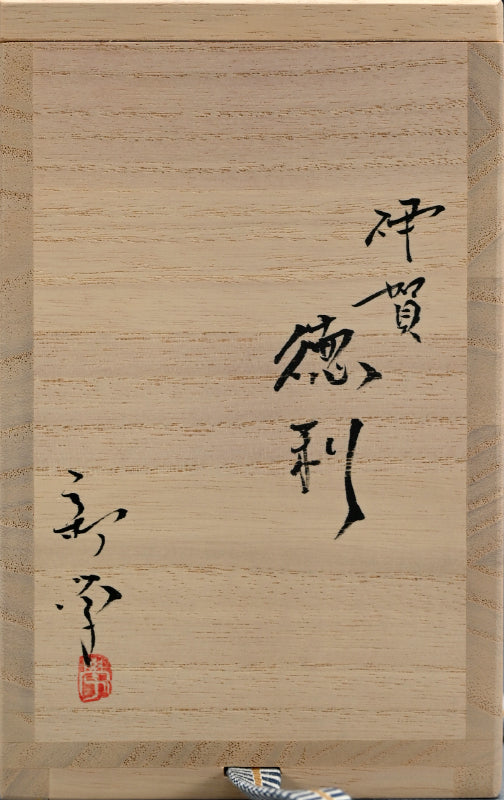 伊賀
徳利
新学